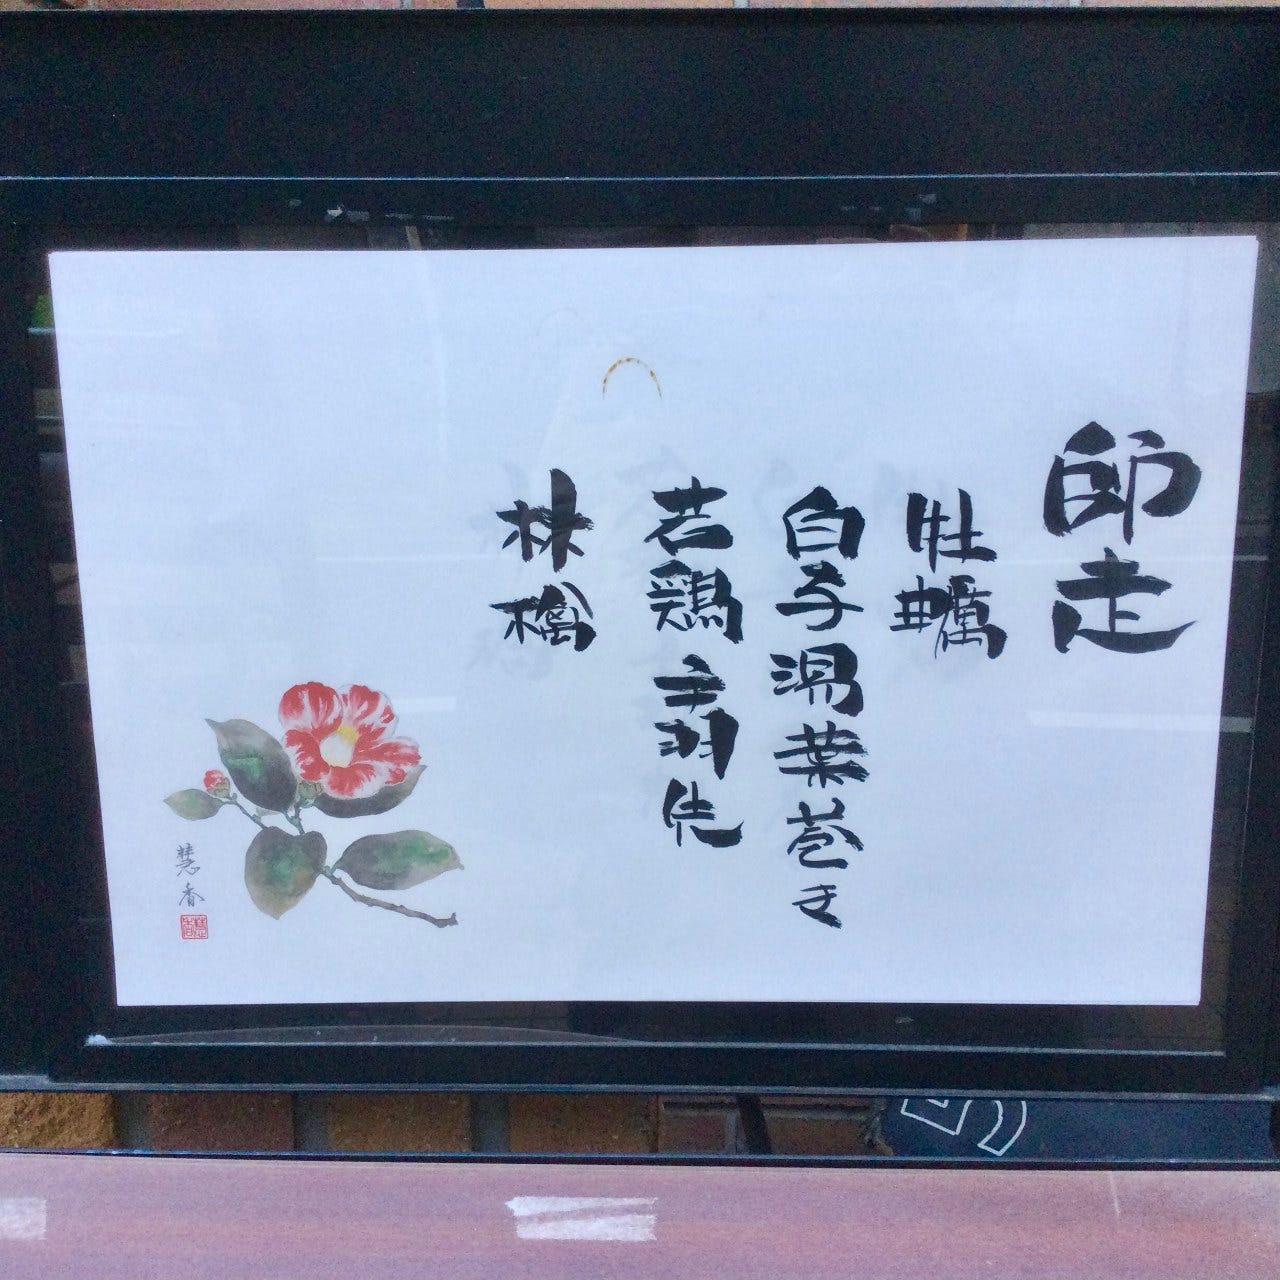 師走
牡蠣
白子湯葉巻き
若鶏手羽先
林檎
慧香
慧香